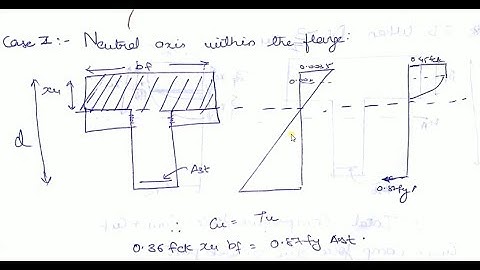 Case I:- Neutral axis within the flange:
bf
0.0035
0.45fck
0.002
xu
d
Ast
0.87fy
∴ Cu = Tu
0.36 fck xu bf = 0.87fy Ast.